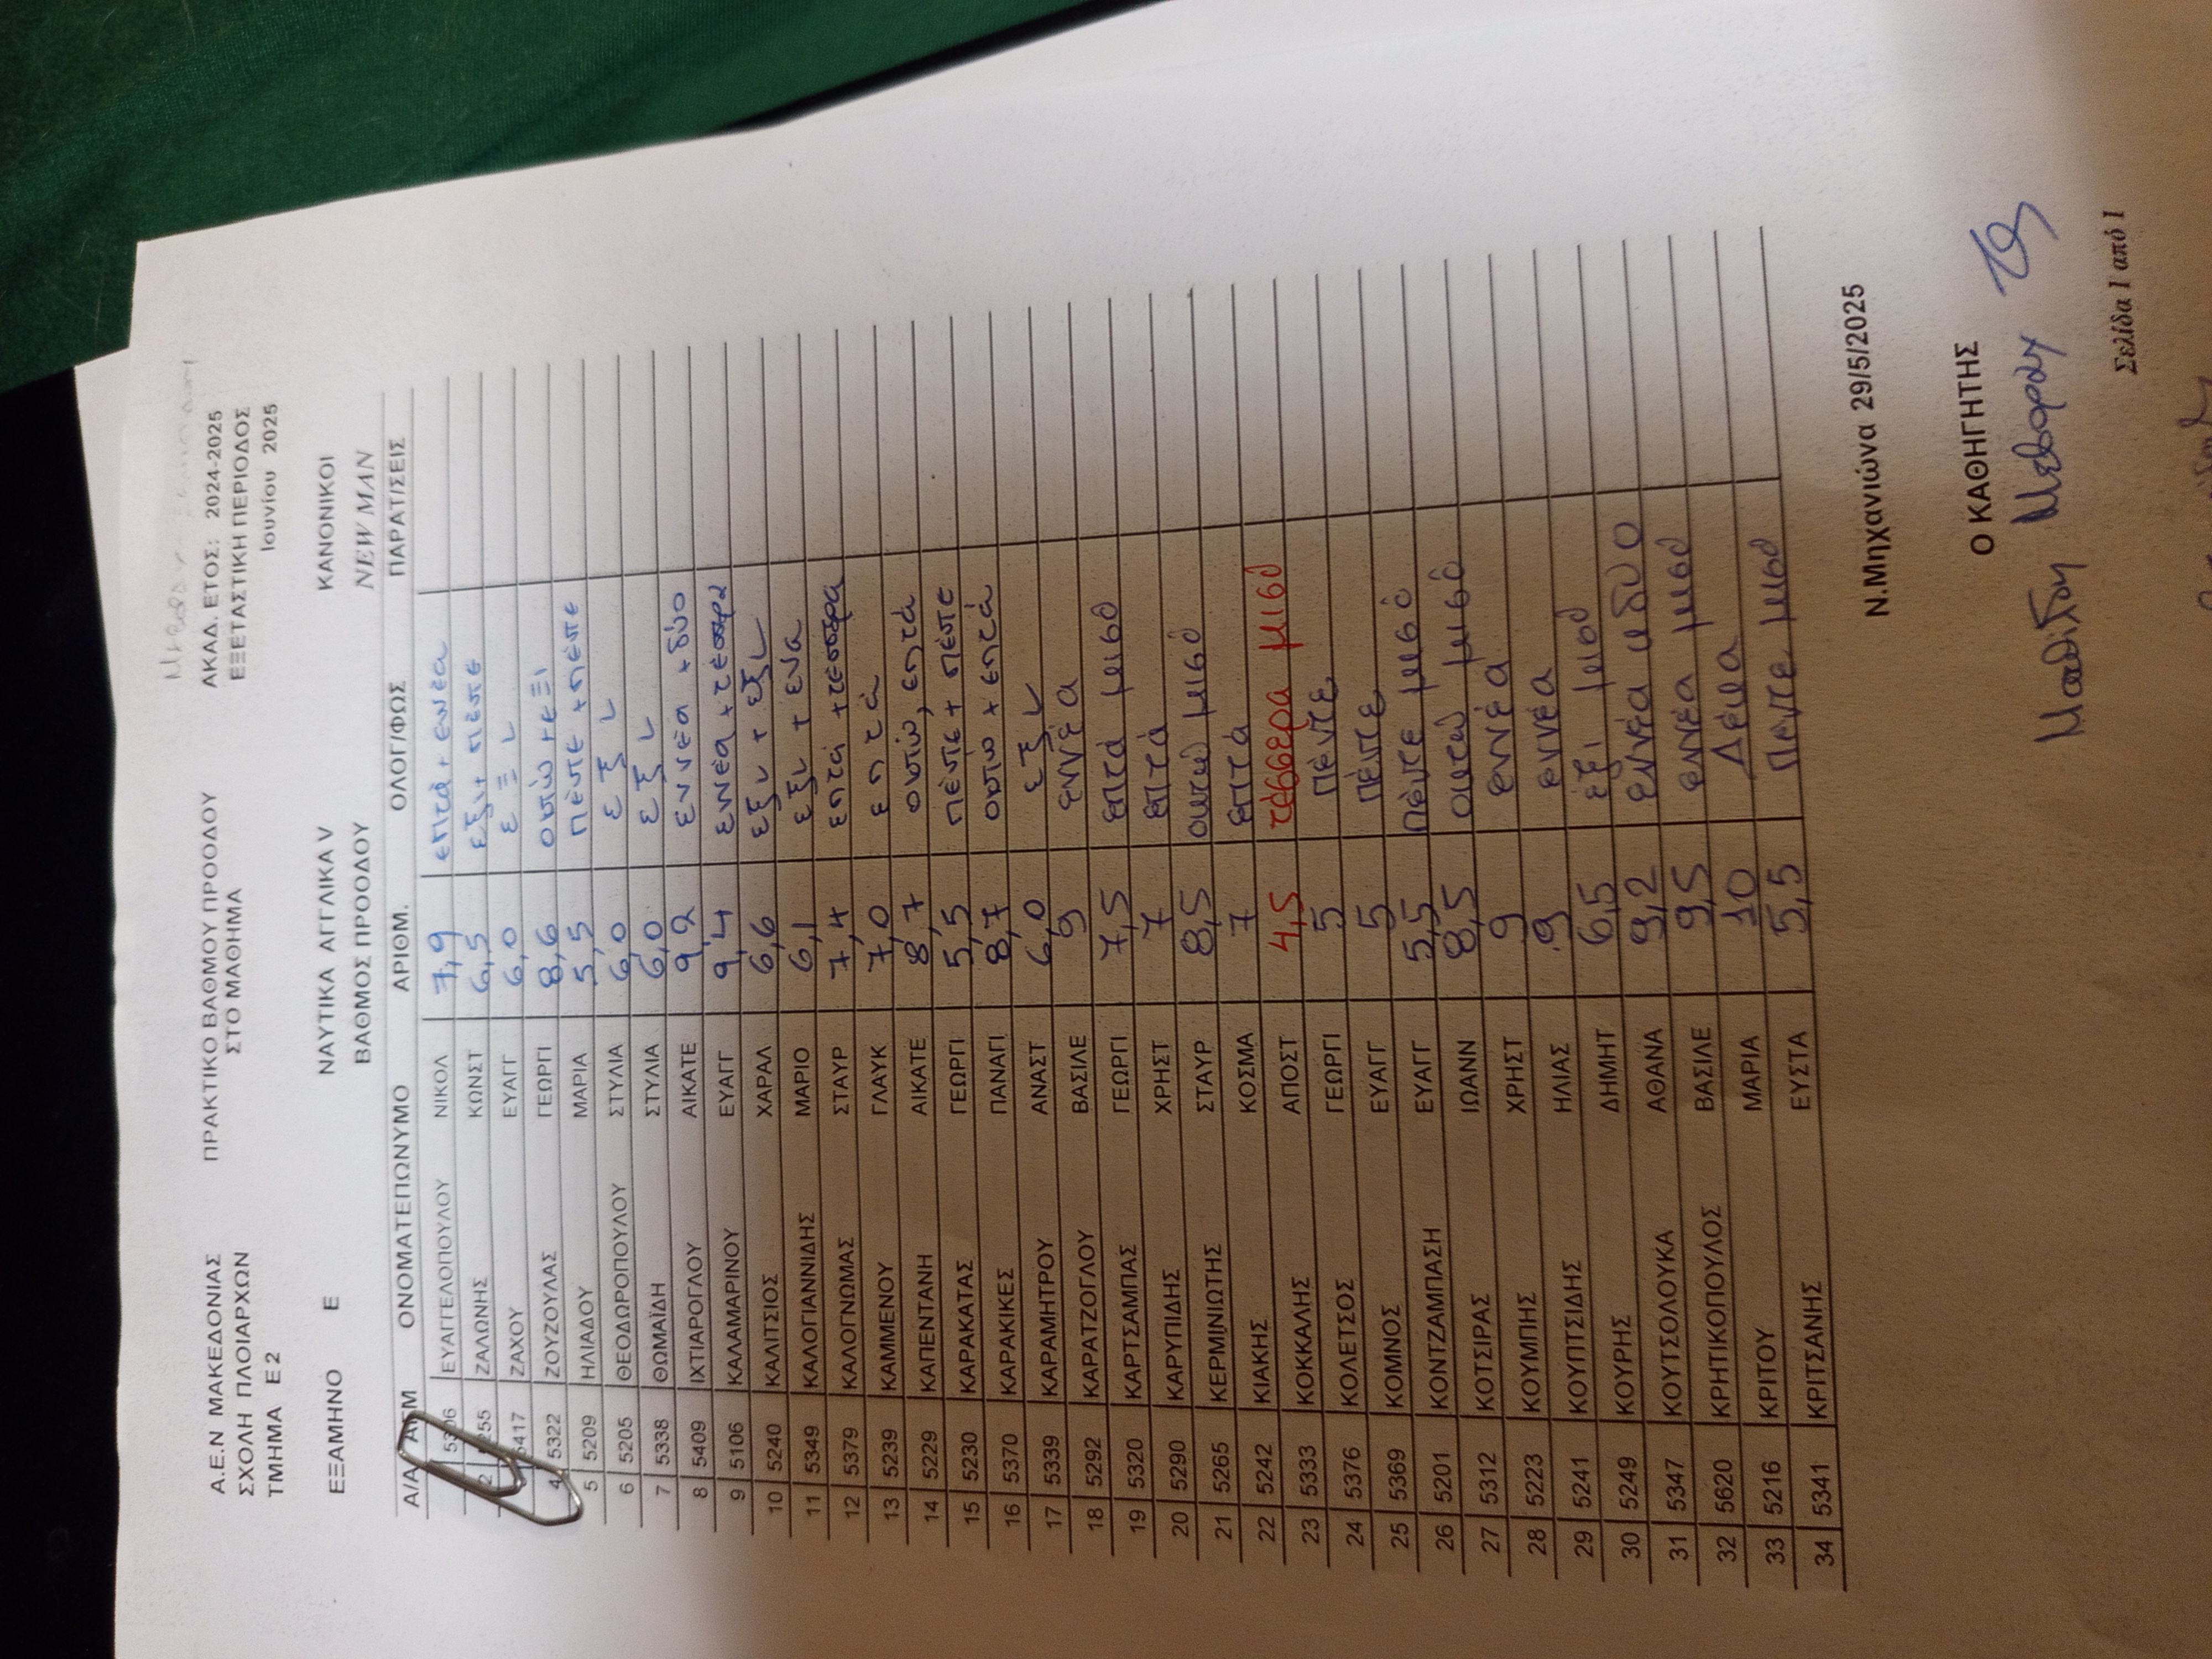 Α.Ε.Ν ΜΑΚΕΔΟΝΙΑΣ ΠΡΑΚΤΙΚΟ ΒΑΘΜΟΥ ΠΡΟΟΔΟΥ ΑΚΑΔ. ΕΤΟΣ: 2024-2025
ΣΧΟΛΗ ΠΛΟΙΑΡΧΩΝ ΣΤΟ ΜΑΘΗΜΑ ΕΞΕΤΑΣΤΙΚΗ ΠΕΡΙΟΔΟΣ
ΤΜΗΜΑ Ε2 Ιουνίου 2025
ΕΞΑΜΗΝΟ Ε ΝΑΥΤΙΚΑ ΑΓΓΛΙΚΑ V ΚΑΝΟΝΙΚΟΙ
ΒΑΘΜΟΣ ΠΡΟΟΔΟΥ NEW MAN
Α/Α ΑΓΜ ΟΝΟΜΑΤΕΠΩΝΥΜΟ ΑΡΙΘΜ. ΟΛΟΓ/ΦΩΣ ΠΑΡΑΤ/ΣΕΙΣ
ΕΥΑΓΓΕΛΟΠΟΥΛΟΥ ΝΙΚΟΛ 7,9 επτά + εννέα
2 ΖΑΛΩΝΗΣ ΚΩΝΣΤ 6,5 εξι + πέντε
5417 ΖΑΧΟΥ ΕΥΑΓΓ 6,0 εξι
4 5322 ΖΟΥΖΟΥΛΑΣ ΓΕΩΡΓΙ 8,6 οκτώ + εξι
5 5209 ΗΛΙΑΔΟΥ ΜΑΡΙΑ 5,5 πέντε + πέντε
6 5205 ΘΕΟΔΩΡΟΠΟΥΛΟΥ ΣΤΥΛΙΑ 6,0 εξι
7 5338 ΘΩΜΑΪΔΗ ΣΤΥΛΙΑ 6,0 εξι
8 5409 ΙΧΤΙΑΡΟΓΛΟΥ ΑΙΚΑΤΕ 9,2 εννέα + δύο
9 5106 ΚΑΛΑΜΑΡΙΝΟΥ ΕΥΑΓΓ 9,4 εννέα + τέσσερα
10 5240 ΚΑΛΙΤΣΙΟΣ ΧΑΡΑΛ 6,6 εξι + εξι
11 5349 ΚΑΛΟΓΙΑΝΝΙΔΗΣ ΜΑΡΙΟ 6,1 εξι + ενα
12 5379 ΚΑΛΟΓΝΩΜΑΣ ΣΤΑΥΡ 7,4 επτά + τέσσερα
13 5239 ΚΑΜΜΕΝΟΥ ΓΛΑΥΚ 7,0 επτά
14 5229 ΚΑΠΕΝΤΑΝΗ ΑΙΚΑΤΕ 8,7 οκτώ, επτά
15 5230 ΚΑΡΑΚΑΤΑΣ ΓΕΩΡΓΙ 5,5 πέντε + πέντε
16 5370 ΚΑΡΑΚΙΚΕΣ ΠΑΝΑΓΙ 8,7 οκτώ + επτά
17 5339 ΚΑΡΑΜΗΤΡΟΥ ΑΝΑΣΤ 6,0 εξι
18 5292 ΚΑΡΑΤΖΟΓΛΟΥ ΒΑΣΙΛΕ 9 εννέα
19 5320 ΚΑΡΤΣΑΜΠΑΣ ΓΕΩΡΓΙ 7,5 επτά μισό
20 5290 ΚΑΡΥΠΙΔΗΣ ΧΡΗΣΤ 7 επτά
21 5265 ΚΕΡΜΙΝΙΩΤΗΣ ΣΤΑΥΡ 8,5 οκτώ μισό
22 5242 ΚΙΑΚΗΣ ΚΟΣΜΑ 7 επτά
23 5333 ΚΟΚΚΑΛΗΣ ΑΠΟΣΤ 4,5 τέσσερα μισό
24 5376 ΚΟΛΕΤΣΟΣ ΓΕΩΡΓΙ 5 πέντε
25 5369 ΚΟΜΝΟΣ ΕΥΑΓΓ 5 πέντε
26 5201 ΚΟΝΤΖΑΜΠΑΣΗ ΕΥΑΓΓ 5,5 πέντε μισό
27 5312 ΚΟΤΣΙΡΑΣ ΙΩΑΝΝ 8,5 οκτώ μισό
28 5223 ΚΟΥΜΠΗΣ ΧΡΗΣΤ 9 εννέα
29 5241 ΚΟΥΠΤΣΙΔΗΣ ΗΛΙΑΣ 9 εννέα
30 5249 ΚΟΥΡΗΣ ΔΗΜΗΤ 6,5 έξι μισό
31 5347 ΚΟΥΤΣΟΛΟΥΚΑ ΑΘΑΝΑ 9,2 εννέα κ δύο
32 5620 ΚΡΗΤΙΚΟΠΟΥΛΟΣ ΒΑΣΙΛΕ 9,5 εννέα μισό
33 5216 ΚΡΙΤΟΥ ΜΑΡΙΑ 10 Δέκα
34 5341 ΚΡΙΤΣΑΝΗΣ ΕΥΣΤΑ 5,5 πέντε μισό
Ν.Μηχανιώνα 29/5/2025
Ο ΚΑΘΗΓΗΤΗΣ
Σελίδα 1 από 1